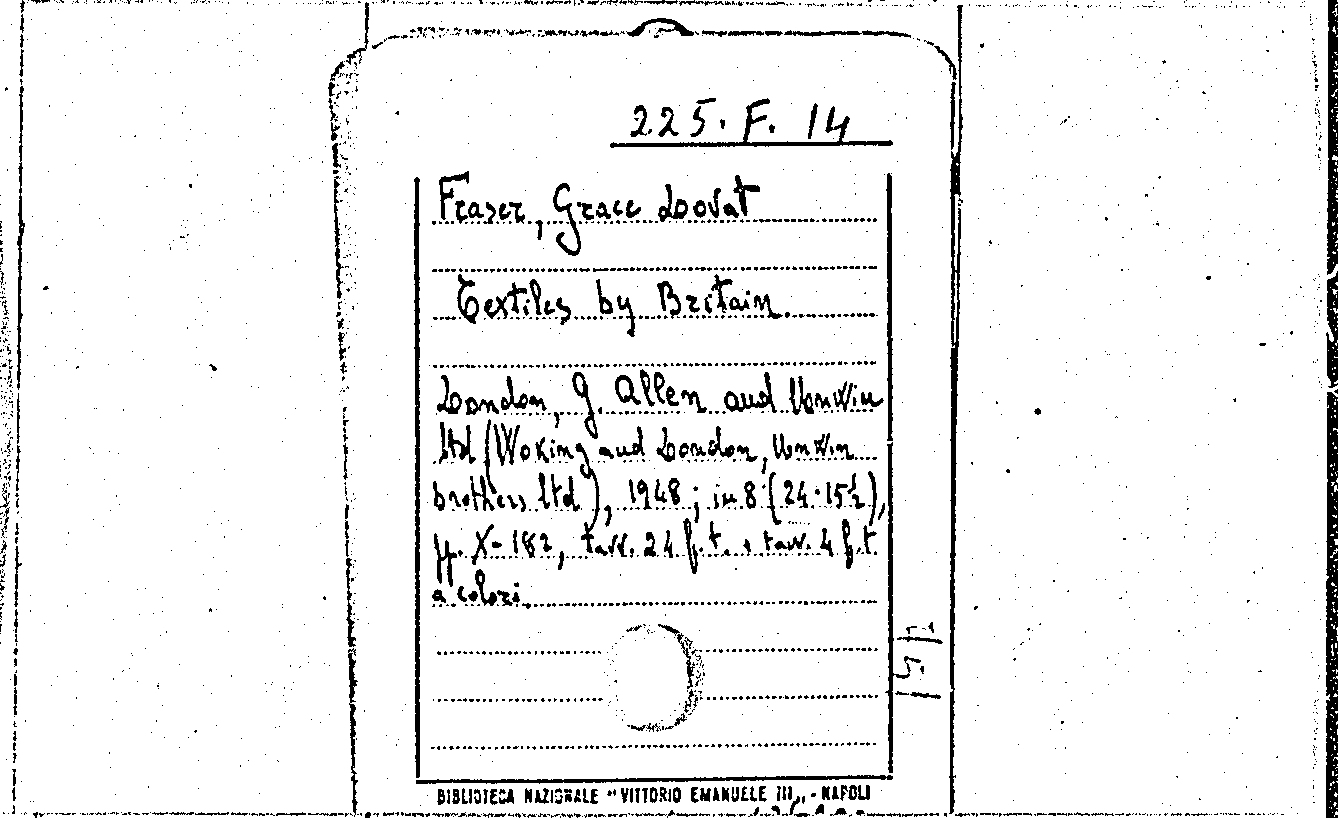 225. F. 14
Fraser, Grace Lovat
Textiles by Britain.
London, G. Allen and Unwin
ltd (Woking and London, Unwin
brothers ltd), 1948; in 8 (24·15½),
pp. X-182, tavv. 24 f.t. e tavv. 4 f.t.
a colori.
BIBLIOTECA NAZIONALE "VITTORIO EMANUELE III„ - NAPOLI